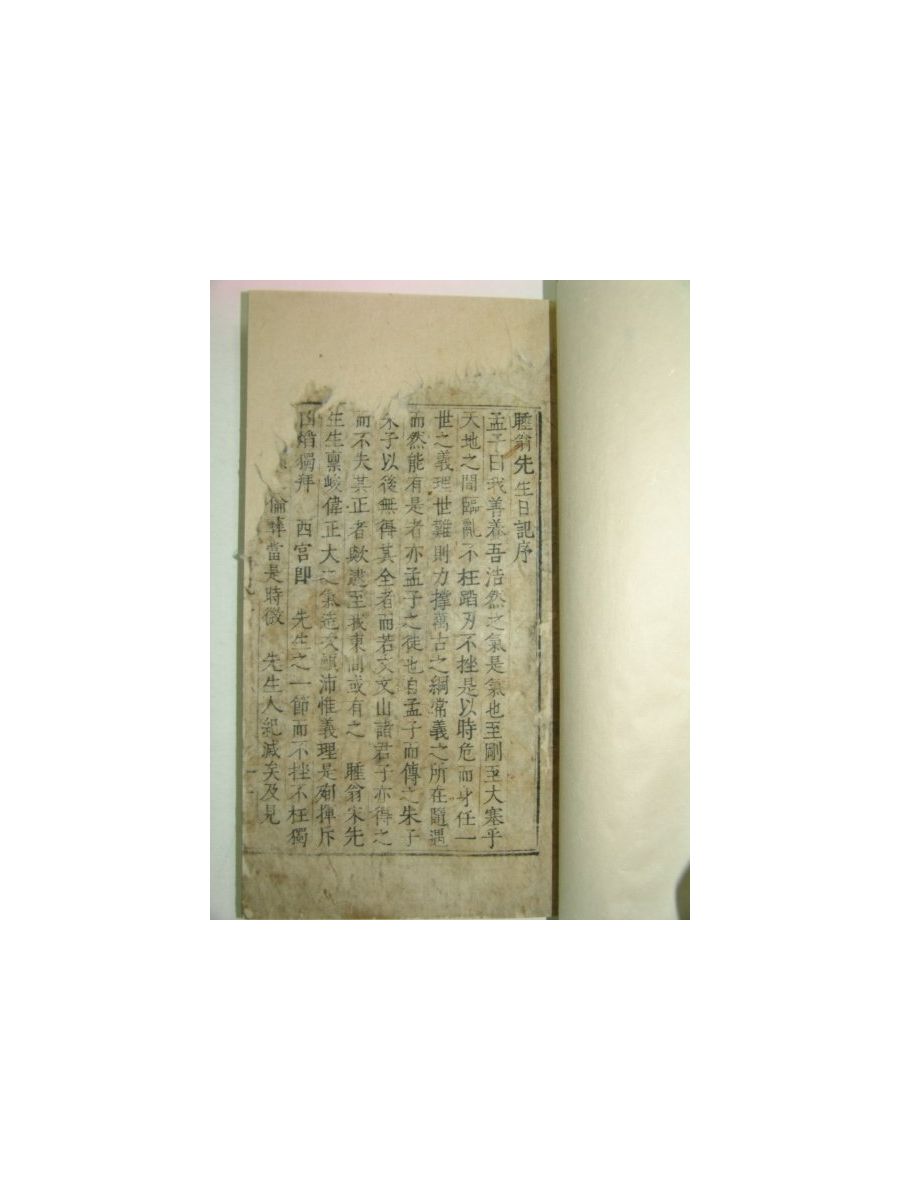 睡翁先生日記序
孟子曰我善養吾浩然之氣是氣也至剛至大塞乎
天地之間臨亂不枉蹈刃不挫是以時危而身任一
世之義理世難則力撑萬古之綱常義之所在隨遇
而然能有是者亦孟子之徒也自孟子而傳之朱子
朱子以後無得其全者而若文文山諸君子亦得之
而不失其正者歟逮至我東間或有之 睡翁宋先
生生禀峻偉正大之氣造次顚沛惟義理是視揮斥
凶焰獨拜 西宮卽 先生之一節而不挫不枉獨
倫彛當是時微 先生人紀滅矣及見